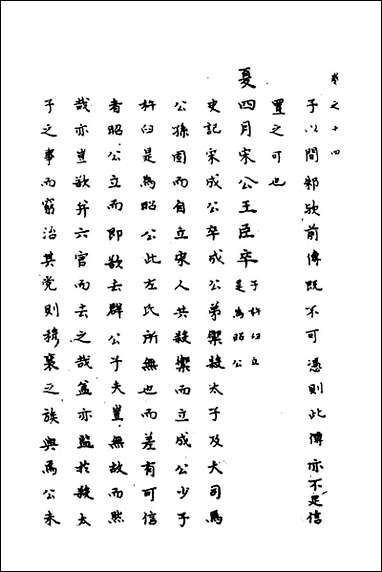 卷之十四
子以間邾欤前傳既不可憑則此傳亦不足信
置之可也
夏四月宋公王臣卒子杵臼立是為昭公
史記宋成公卒成公弟禦殺太子及大司馬
公孫固而自立宋人共殺禦而立成公少子
杵臼是為昭公此左氏所無也而差有可信
者昭公立而即欲去群公子夫豈無故而然
哉亦豈欲并六官而去之哉盖亦監扵殺太
子之事而窮治其党則穆襄之族與焉公未